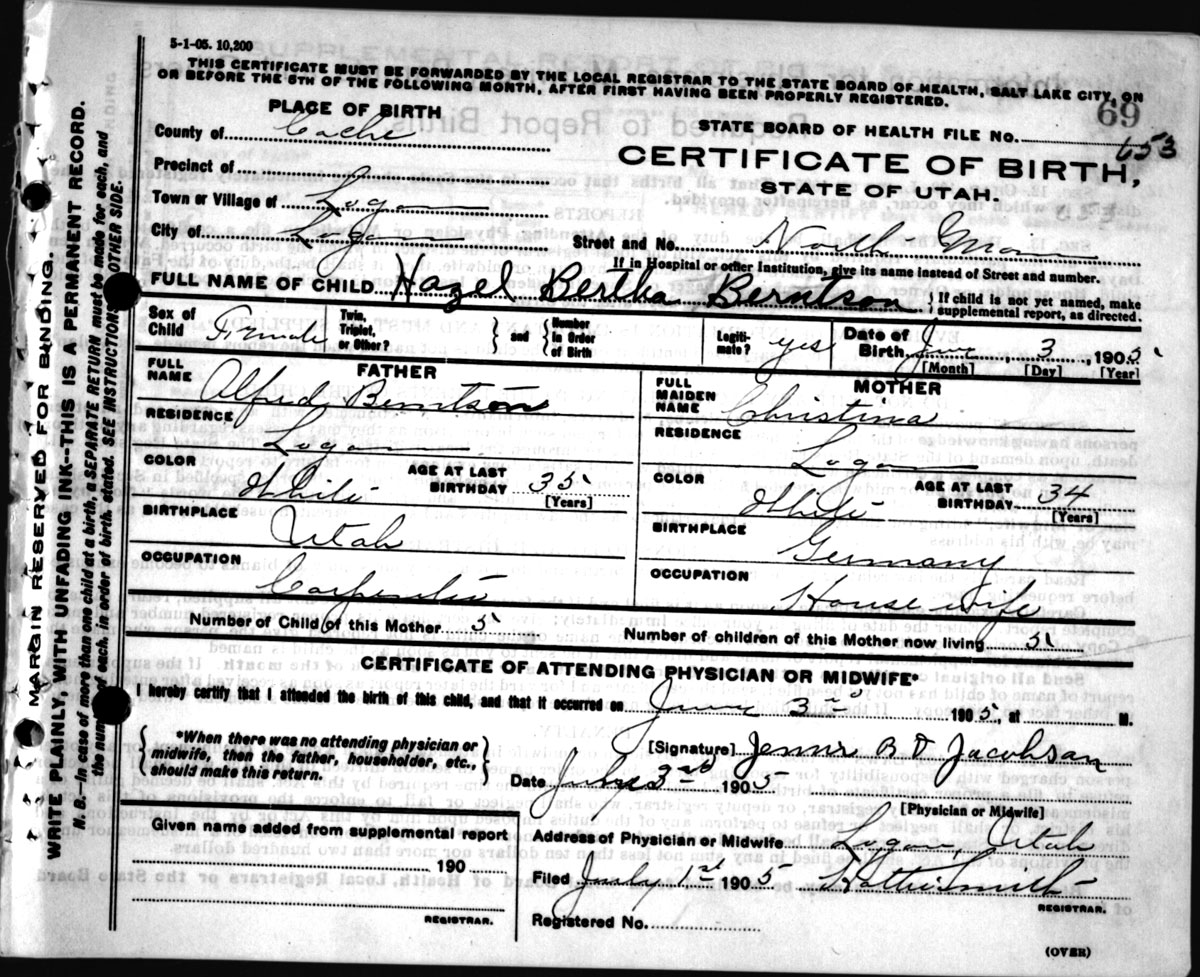 5-1-05. 10,200
THIS CERTIFICATE MUST BE FORWARDED BY THE LOCAL REGISTRAR TO THE STATE BOARD OF HEALTH, SALT LAKE CITY, ON
OR BEFORE THE 5TH OF THE FOLLOWING MONTH, AFTER FIRST HAVING BEEN PROPERLY REGISTERED.
69
PLACE OF BIRTH
STATE BOARD OF HEALTH FILE No. 653
County of Cache
CERTIFICATE OF BIRTH,
Precinct of
STATE OF UTAH.
Town or Village of Logan
City of Logan
Street and No. North
If in Hospital or other Institution, give its name instead of Street and number.
FULL NAME OF CHILD Hazel Bertha Berntson } If child is not yet named, make supplemental report, as directed.
Sex of Child Female
Twin, Triplet, or Other? } and { Number in Order of Birth
Legitimate? yes
Date of Birth June 3 1905
[Month] [Day] [Year]
FATHER
FULL NAME Alfred Berntson
RESIDENCE Logan
COLOR White
AGE AT LAST BIRTHDAY 35
[Years]
BIRTHPLACE Utah
OCCUPATION Carpenter
MOTHER
FULL MAIDEN NAME Christina
RESIDENCE Logan
COLOR White
AGE AT LAST BIRTHDAY 34
[Years]
BIRTHPLACE Germany
OCCUPATION House wife
Number of Child of this Mother 5
Number of children of this Mother now living 5
CERTIFICATE OF ATTENDING PHYSICIAN OR MIDWIFE*
I hereby certify that I attended the birth of this child, and that it occurred on June 3 1905, at M.
{ *When there was no attending physician or
midwife, then the father, householder, etc.,
should make this return. }
[Signature] Jennie B D Jacobson
Date June 3rd 1905
[Physician or Midwife]
Given name added from supplemental report
190
REGISTRAR.
Address of Physician or Midwife Logan, Utah
Filed July 1st 1905 Hattie Smith
REGISTRAR.
Registered No.
(OVER)
MARGIN RESERVED FOR BINDING.
WRITE PLAINLY, WITH UNFADING INK--THIS IS A PERMANENT RECORD.
N. B.--In case of more than one child at a birth, a SEPARATE RETURN must be made for each, and
the number of each, in order of birth, stated. SEE INSTRUCTIONS OTHER SIDE.